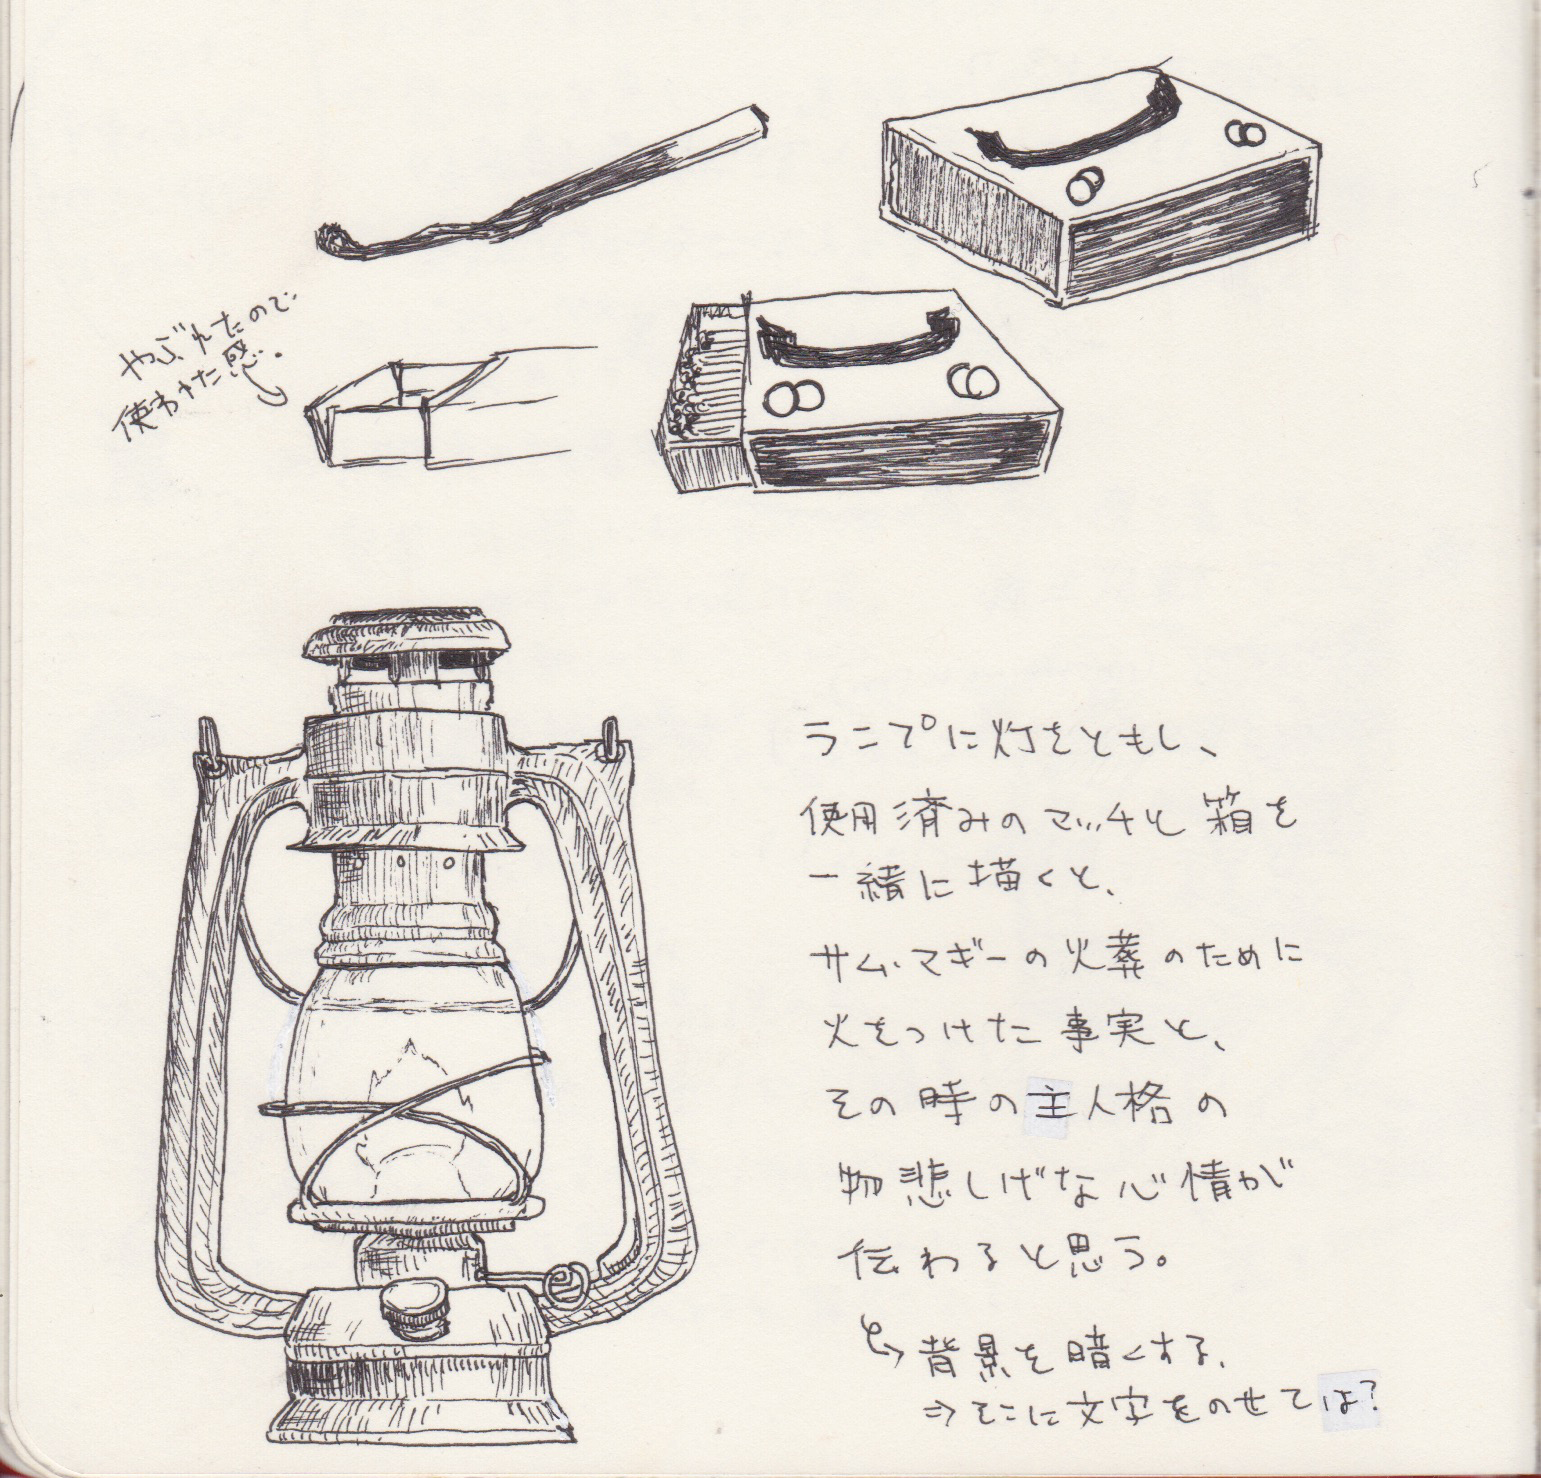 やぶれたので
使われた感。
ランプに灯をともし、
使用済みのマッチと箱を
一緒に描くと、
サム・マギーの火葬のために
火をつけた事実と、
その時の主人格の
物悲しげな心情が
伝わると思う。
↳背景を暗くする。
⇒そこに文字をのせては?